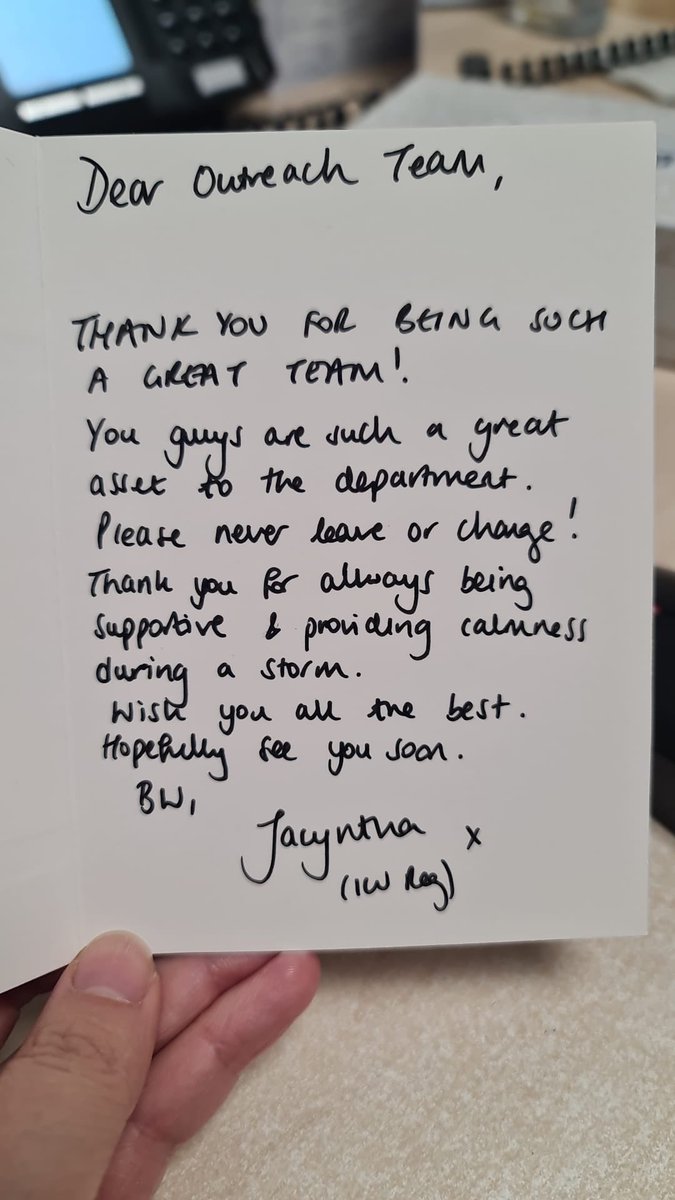 Dear Outreach Team,
THANK YOU FOR BEING SUCH
A GREAT TEAM!
You guys are such a great
asset to the department.
Please never leave or change!
Thank you for always being
supportive & providing calmness
during a storm.
Wish you all the best.
Hopefully see you soon.
BW,
Jacyntha x
(ICU Reg)